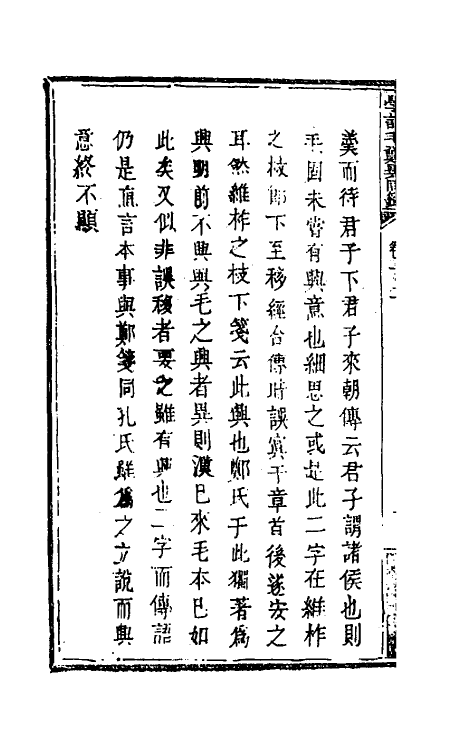 羹而待君子下君子來朝傳云君子謂諸侯也則
毛固未嘗有興意也細思之或是此二字在維柞
之枝節下至移經合傳時誤寘于章首後遂安之
耳然維柞之枝下箋云此興也鄭氏于此獨著爲
興明前不興與毛之興者異則漢已來毛本已如
此矣又似非誤移者要之雖有興也二字而傳語
仍是直言本事與鄭箋同孔氏雖爲之立說而興
意終不顯